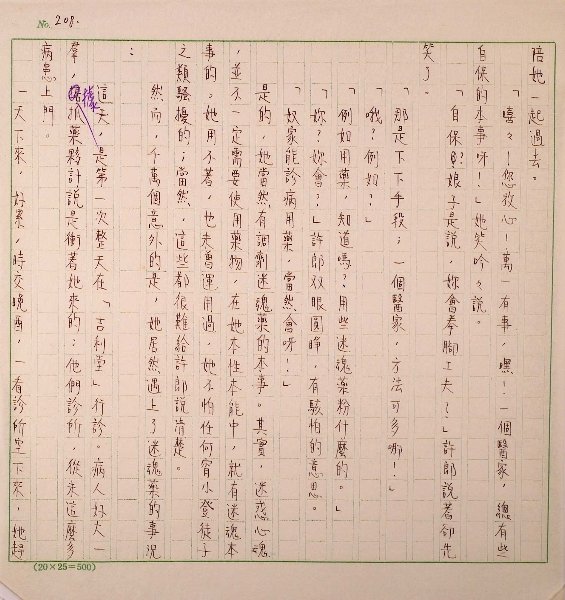 No. 208.
陪她一起過去。
「嘻々！您放心！萬一有事，嘿！一個醫家，總有些
自保的本事呀！」她笑吟々說。
「自保？娘子是說，妳會拳腳工夫？」許郎說著卻先
笑了。
「那是下下手段；一個醫家，方法可多哪！」
「哦？例如？」
「例如用藥，知道嗎？用些迷魂藥粉什麼的。」
「妳？妳會？」許郎双眼圓睜，有駭怕的意思。
「奴家能診病用藥，當然會呀！」
是的，她當然有調劑迷魂藥的本事。其實，迷惑心魂
，並不一定需要使用藥物，在她本性本能中，就有迷魂本
事的；她用不著，也未曾運用過，她不怕任何宵小登徒子
之類騷擾的；當然，這些都很難給許郎說清楚。
然而，千萬個意外的是，她居然遇上了迷魂藥的事況
：
這天，是第一次整天在「吉利堂」行診。病人好大一
羣，據抓藥夥計說是衝著她來的；他們診所，從來這麼多
病患上門。
一天下來，好累，時交晚酉，一看診所空下來，她趕
(20×25=500)